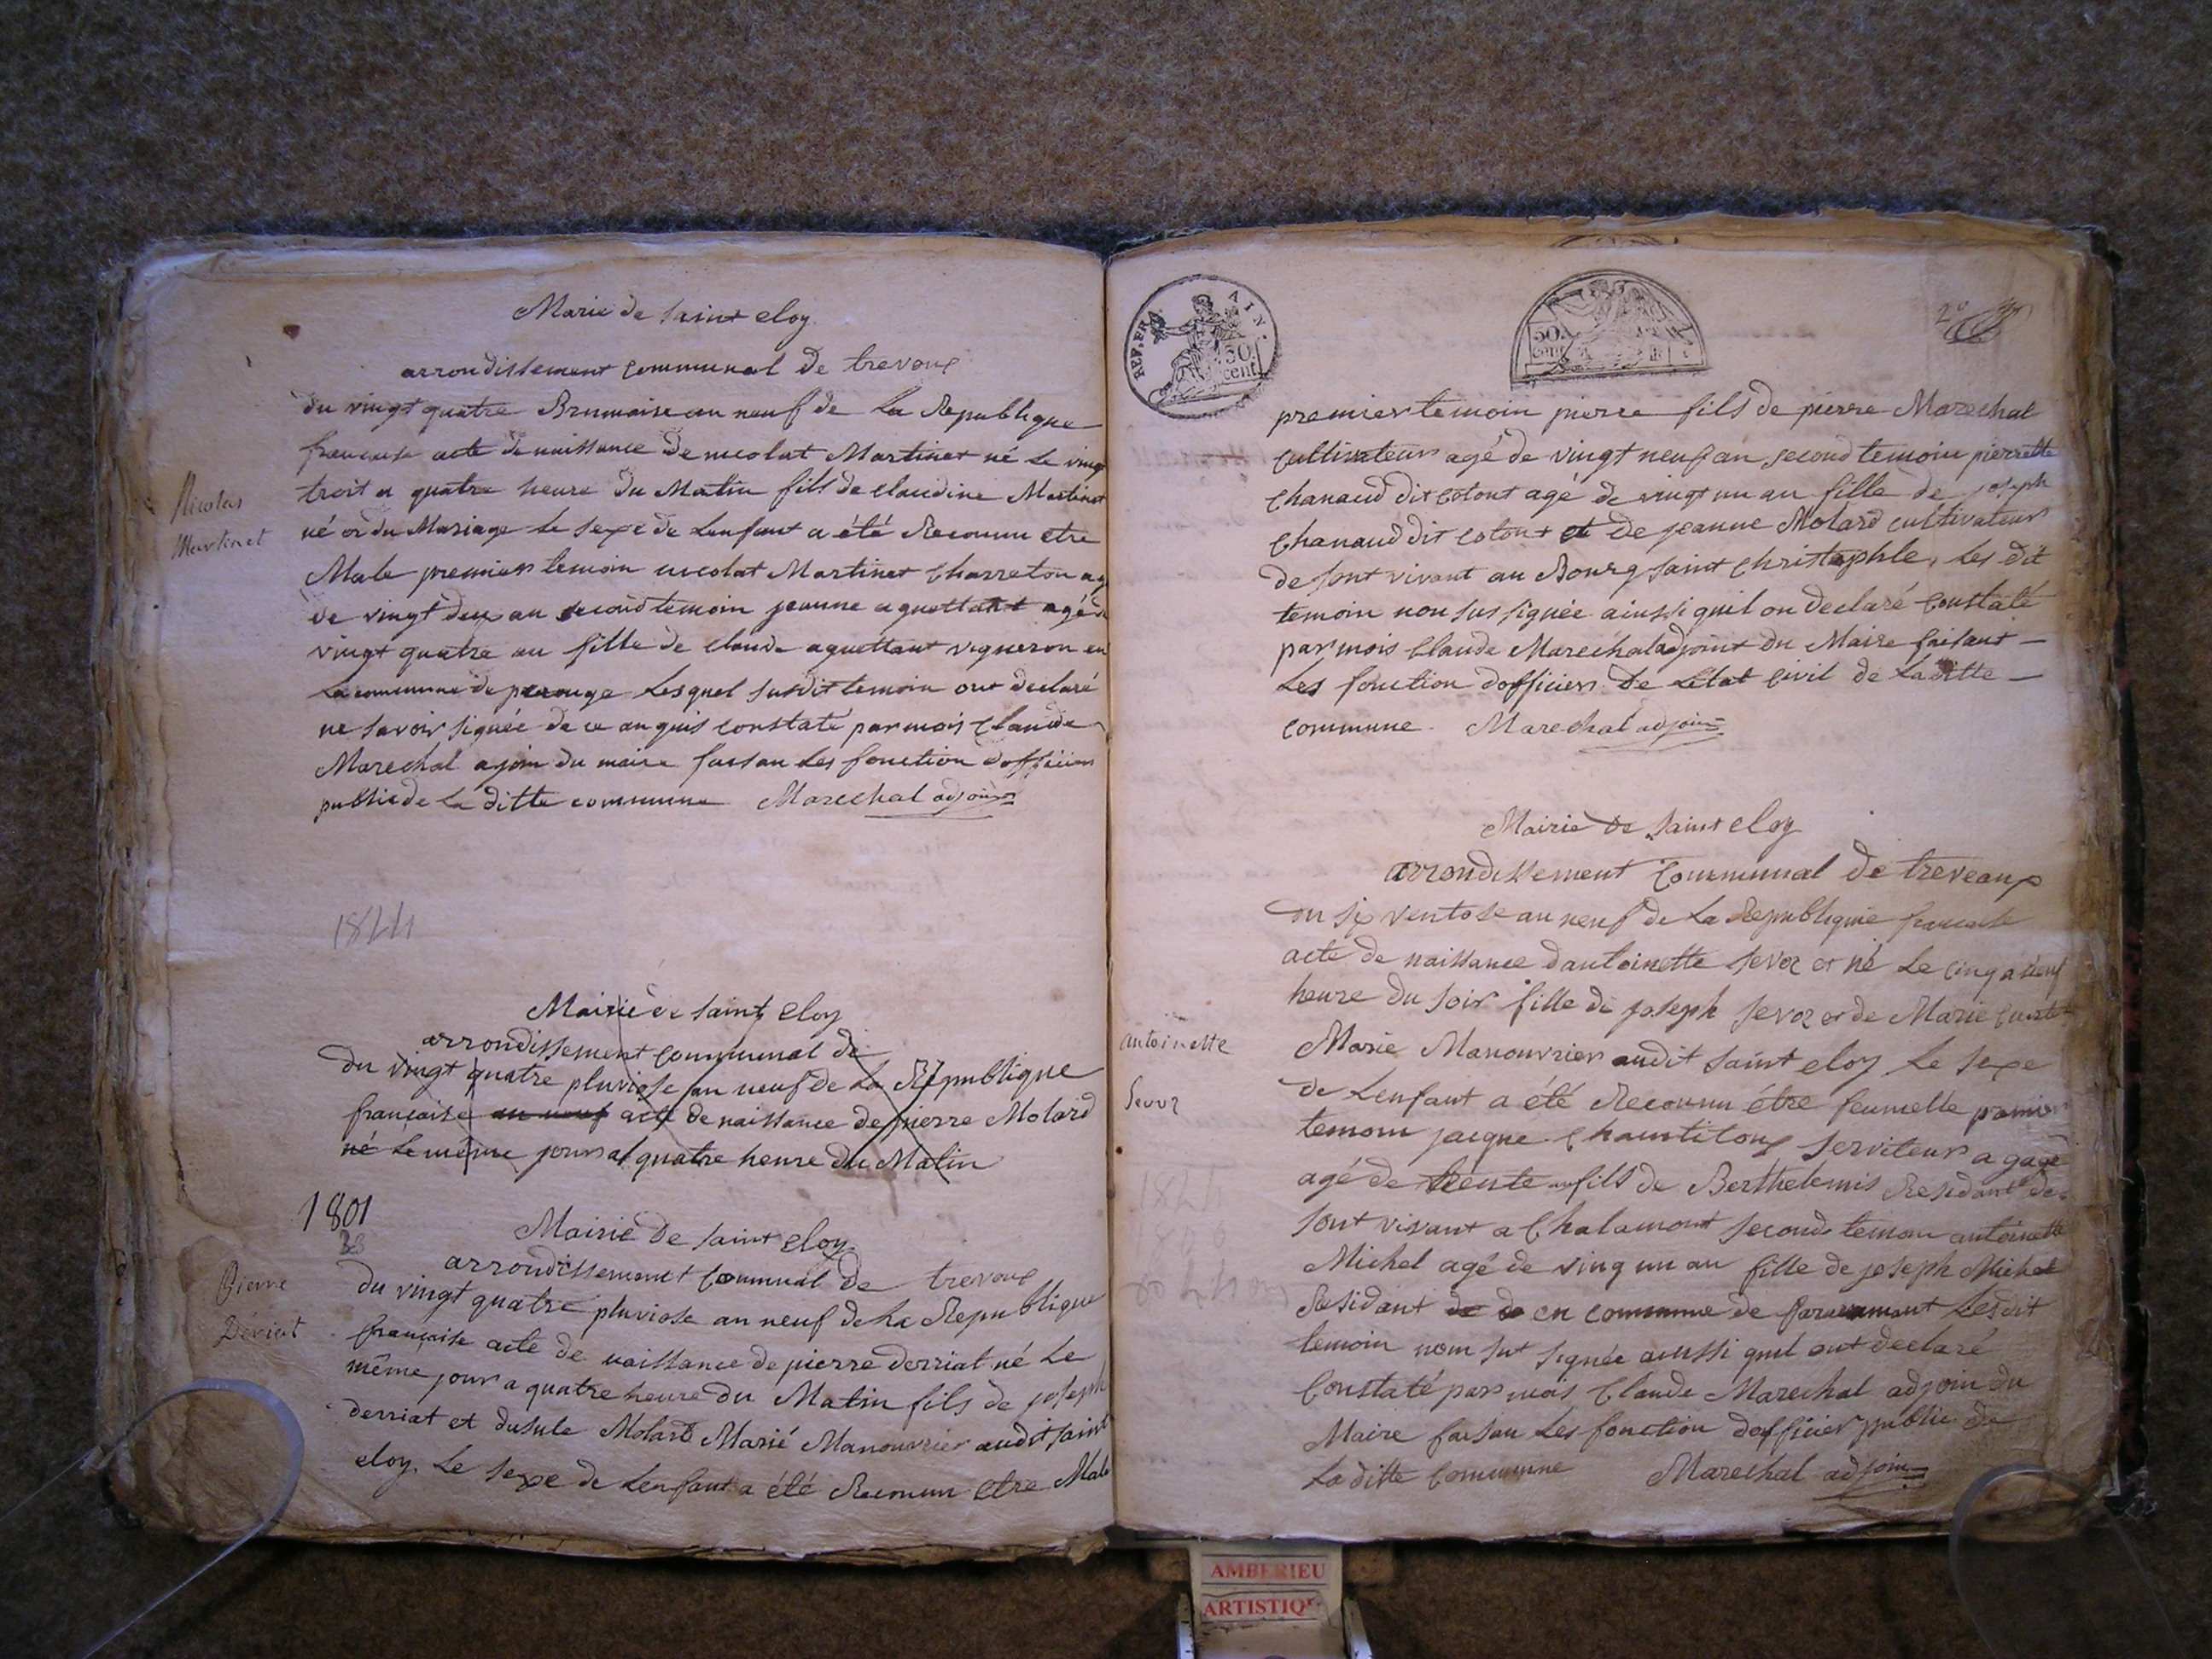 Marie de saint eloy
arrondissement communal de trevoux
du vingt quatre Brumaire an neuf de La Republique
francaise acte de naissance de nicolat Martinet né Le vingt
troit a quatre heure du Matin fils de claudine Martinet
né or du Mariage Le sexe de Lenfant a été Reconnu etre
Male premier temoin nicolat Martinet Charreton agé
de vingt deux an second temoin jeanne aguettant agé de
vingt quatre an fille de claude aguettant vigneron en
La commune de perouge Lesquel susdit temoin ont declaré
ne savoir signée de ce anquis constaté par mois Claude
Marechal ajoin du maire faisan Les fonction dofficier
public de La ditte commune Marechal adjoin
Nicolas
Martinet
Mairie de saint Eloy
arrondissement communal de
du vingt quatre pluviose an neuf de La Republique
française an neuf acte de naissance de pierre Molard
né Le même jour a quatre heure du Matin
1801
23
Mairie de saint Eloy
arrondissement communal de trevoux
du vingt quatre pluviose an neuf de La Republique
française acte de naissance de pierre derriat né Le
même jour a quatre heure du Matin fils de joseph
derriat et dusule Molard Marié Manouvrier audit saint
eloy. Le sexe de Lenfant a été Reconnu Etre Male
Pierre
Dériat
REP. FRA
AIN
50
cent
50
cent
premier temoin pierre fils de pierre Marechal
cultivateur agé de vingt neuf an second temoin pierrette
Chanaud dit cotont agé de vingt un an fille de joseph
Chanaud dit cotont et de jeanne Molard cultivateur
de sont vivant au Bourg saint Christophle, Les dit
temoin non sus signée ainssi quil on declaré constaté
par mois Claude Marechal adjoint du Maire faisant
Les fonction dofficier de Letat civil de La ditte
commune. Marechal adjoin
Mairie de saint eloy
arrondissement Communal de treveaux
du six ventose an neuf de La Republique francaise
acte de naissance dantoinette sevoz et né Le cinq a neuf
heure du soir fille de joseph sevoz et de Marie
Marié Manouvrier audit saint eloy Le sexe
de Lenfant a été Reconnu être feumelle premier
temoin jacque serviteur a gage
agé de trente an fils de Berthelemis Residant de
sont vivant a Chalamont second temoin antoinette
Michel agé de ving un an fille de joseph Michel
Residant de de en commune de faramant Lesdit
temoin nom sut signée ainssi quil ont declaré
Constaté par mois Claude Marechal adjoin du
Maire faisan Les fonction dofficier public de
La ditte Commune Marechal adjoin
antoinette
Sevoz
AMBERIEU
ARTISTIQUE